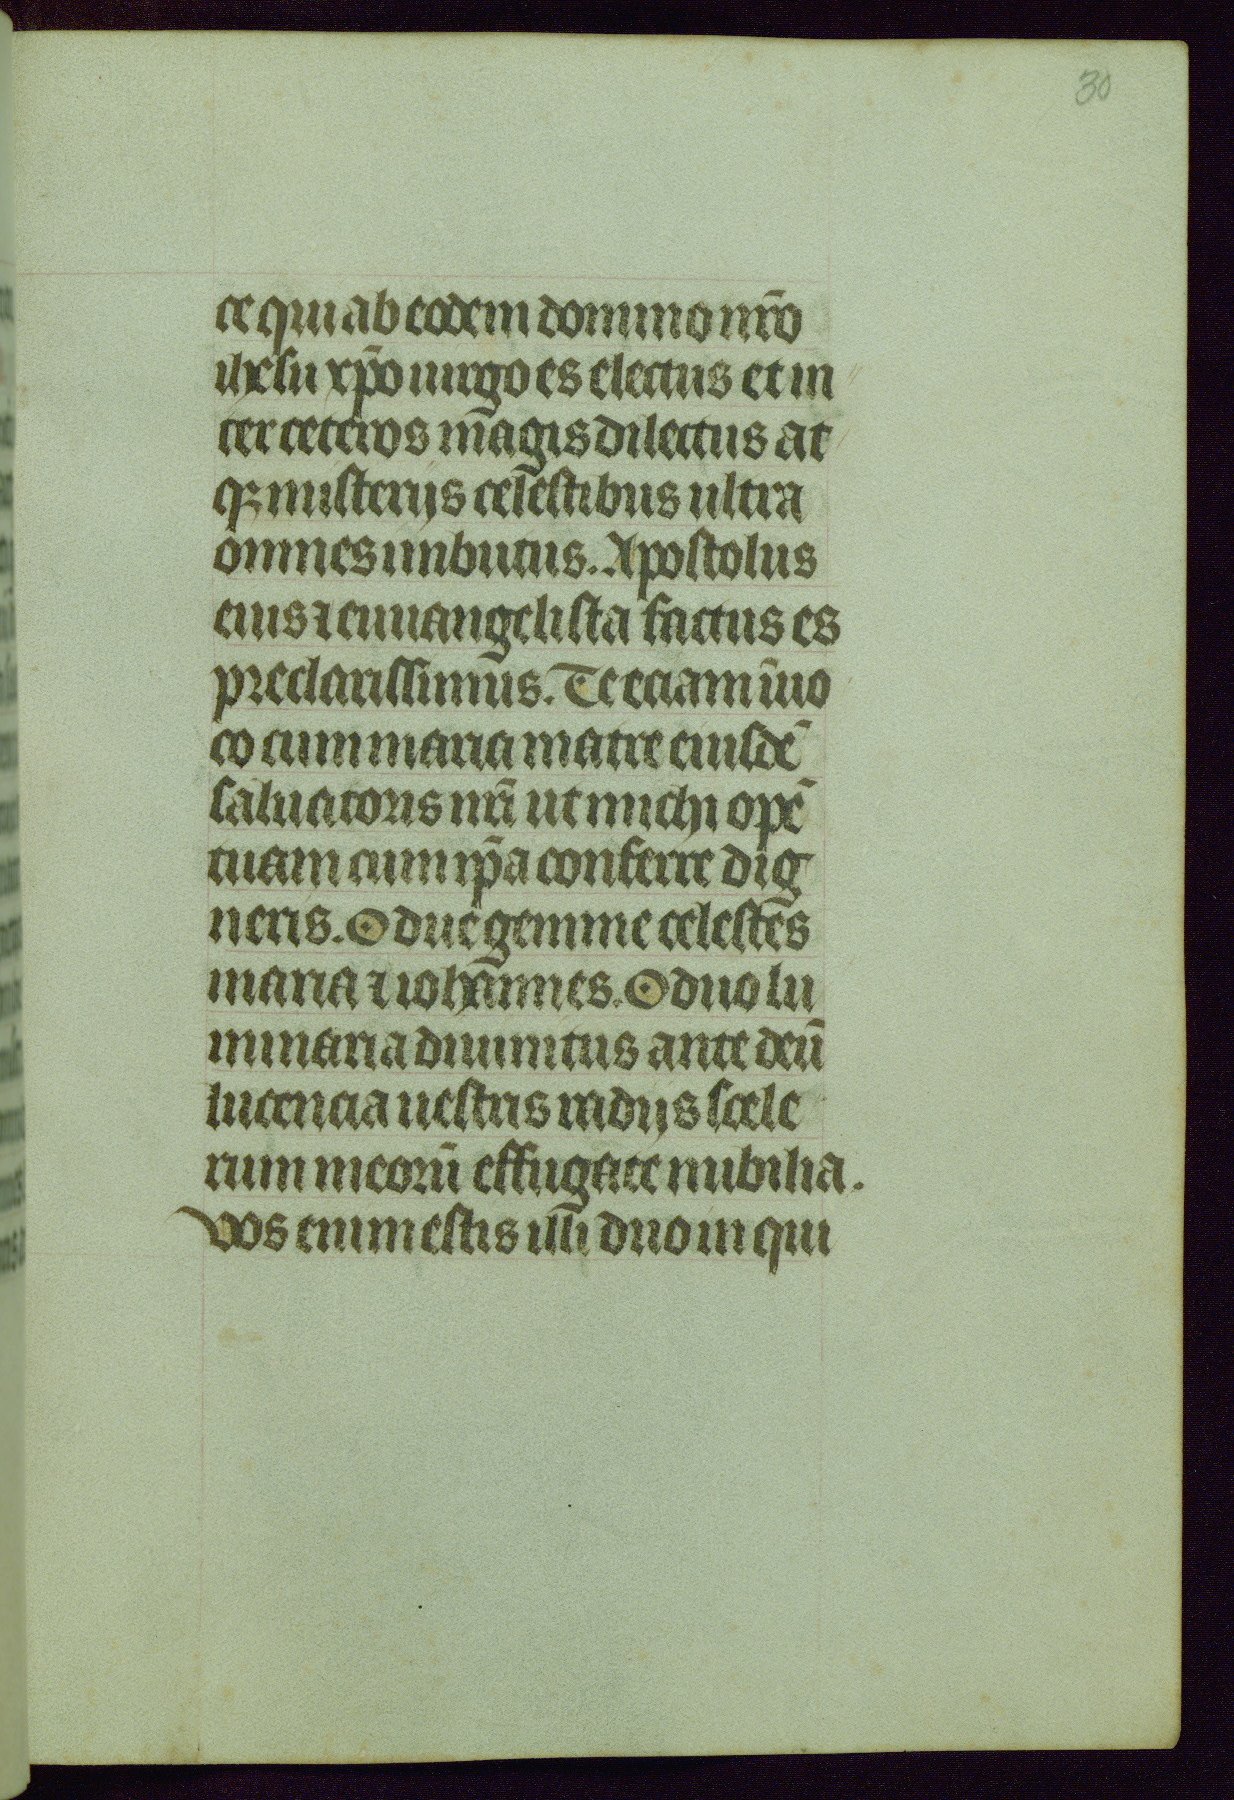 30
ce qui ab eodem domino nr̄o
ihesu xp̄o uirgo es electus et in
ter ceteros magis dilectus at
qꝫ misterijs celestibus ultra
omnes imbutus. Apostolus
eius ⁊ euuangelista factus es
preclarissimus. Te eciam īuo
co cum maria matre eiusdē
saluatoris nr̄i ut michi opē
tuam cum ip̄a conferre dig
neris. O due gemme celestes
maria ⁊ iohannes. O duo lu
minaria diuinitus ante deū
lucencia uestris radijs scele
rum meorū effugate nubilia.
Vos enim estis illi duo in qui